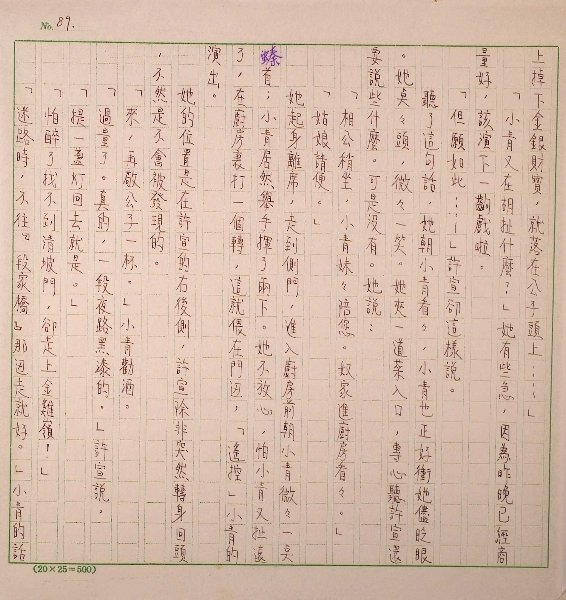 No. 89.
上掉下金銀財寶，就落在公子頭上⋯⋯」
「小青又在胡扯什麼？」她有些急，因為昨晚已經商
量好，該演下一齣戲啦。
「但願如此⋯⋯」許宣卻這樣說。
聽了這句話，她朝小青看々，小青也正好衝她儘眨眼
。她點々頭，微々一笑。她夾一道菜入口，專心聽許宣還
要說些什麼。可是沒有。她說：
「相公稍坐，小青妹々陪您。奴家進廚房看々。」
「姑娘請便。」
她起身離席，走到側門，進入廚房前朝小青微々一吴
蓁首；小青居然舉手揮了兩下。她不放心，怕小青又扯遠
了，在廚房裏打一個轉，這就偎在門邊，「遙控」小青的
演出。
她的位置是在許宣的右後側，許宣除非突然轉身回頭
，不然是不會被發現的。
「來，再敬公子一杯。」小青勸酒。
「過量了。真的，一段夜路黑漆的。」許宣說。
「提一盞灯回去就是。」
「怕醉了找不到清坡門，卻走上金雞嶺！」
「迷路時，不往『段家橋』那边走就好。」小青的話
(20×25=500)